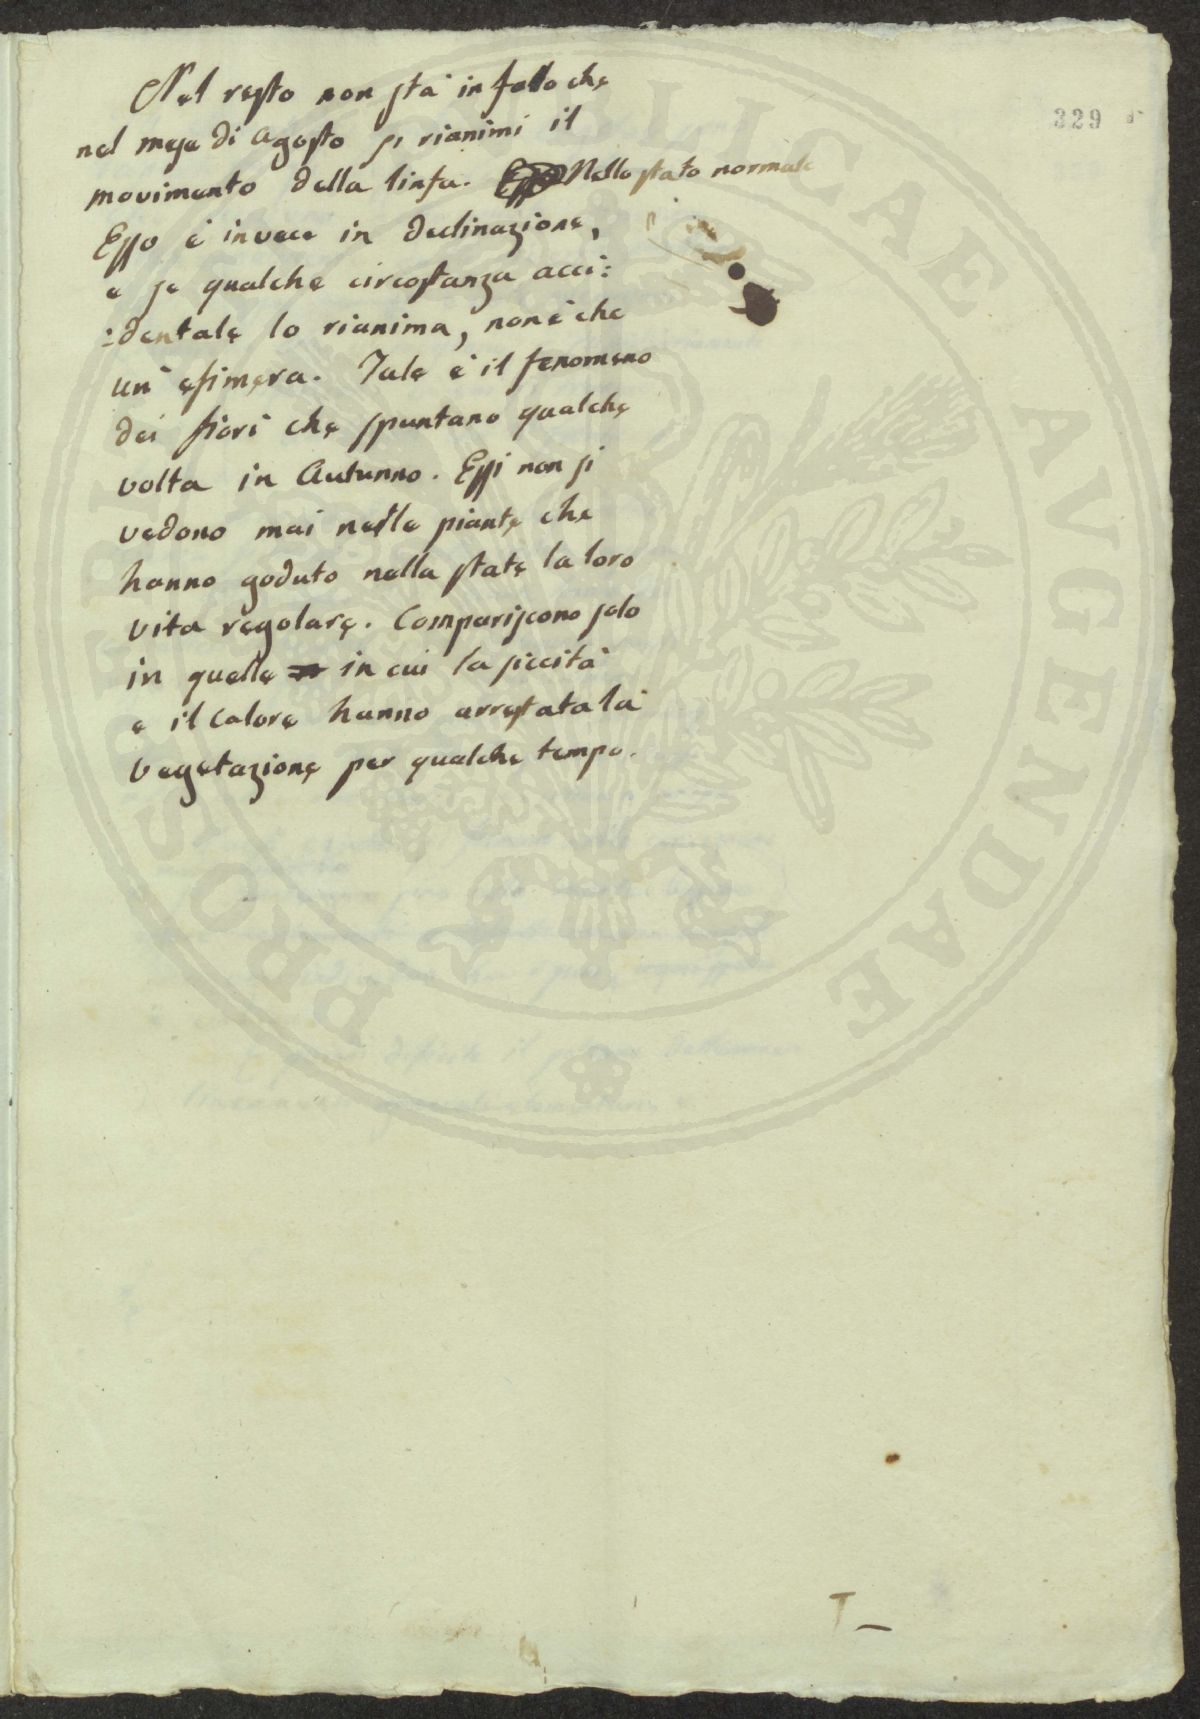 329
Nel resto non sta in fatto che
nel mese di Agosto si rianimi il
movimento della linfa. Nello stato normale
Esso è invece in declinazione,
e se qualche circostanza acci:
:dentale lo rianima, non è che
un' efimera. Tale è il fenomeno
dei fiori che spuntano qualche
volta in Autunno. Essi non si
vedono mai nelle piante che
hanno goduto nella state la loro
vita regolare. Compariscono solo
in quelle in cui la siccità
e il calore hanno arrestata la
vegetazione per qualche tempo.
PROSPERITATI PUBLICAE AVGENDAE